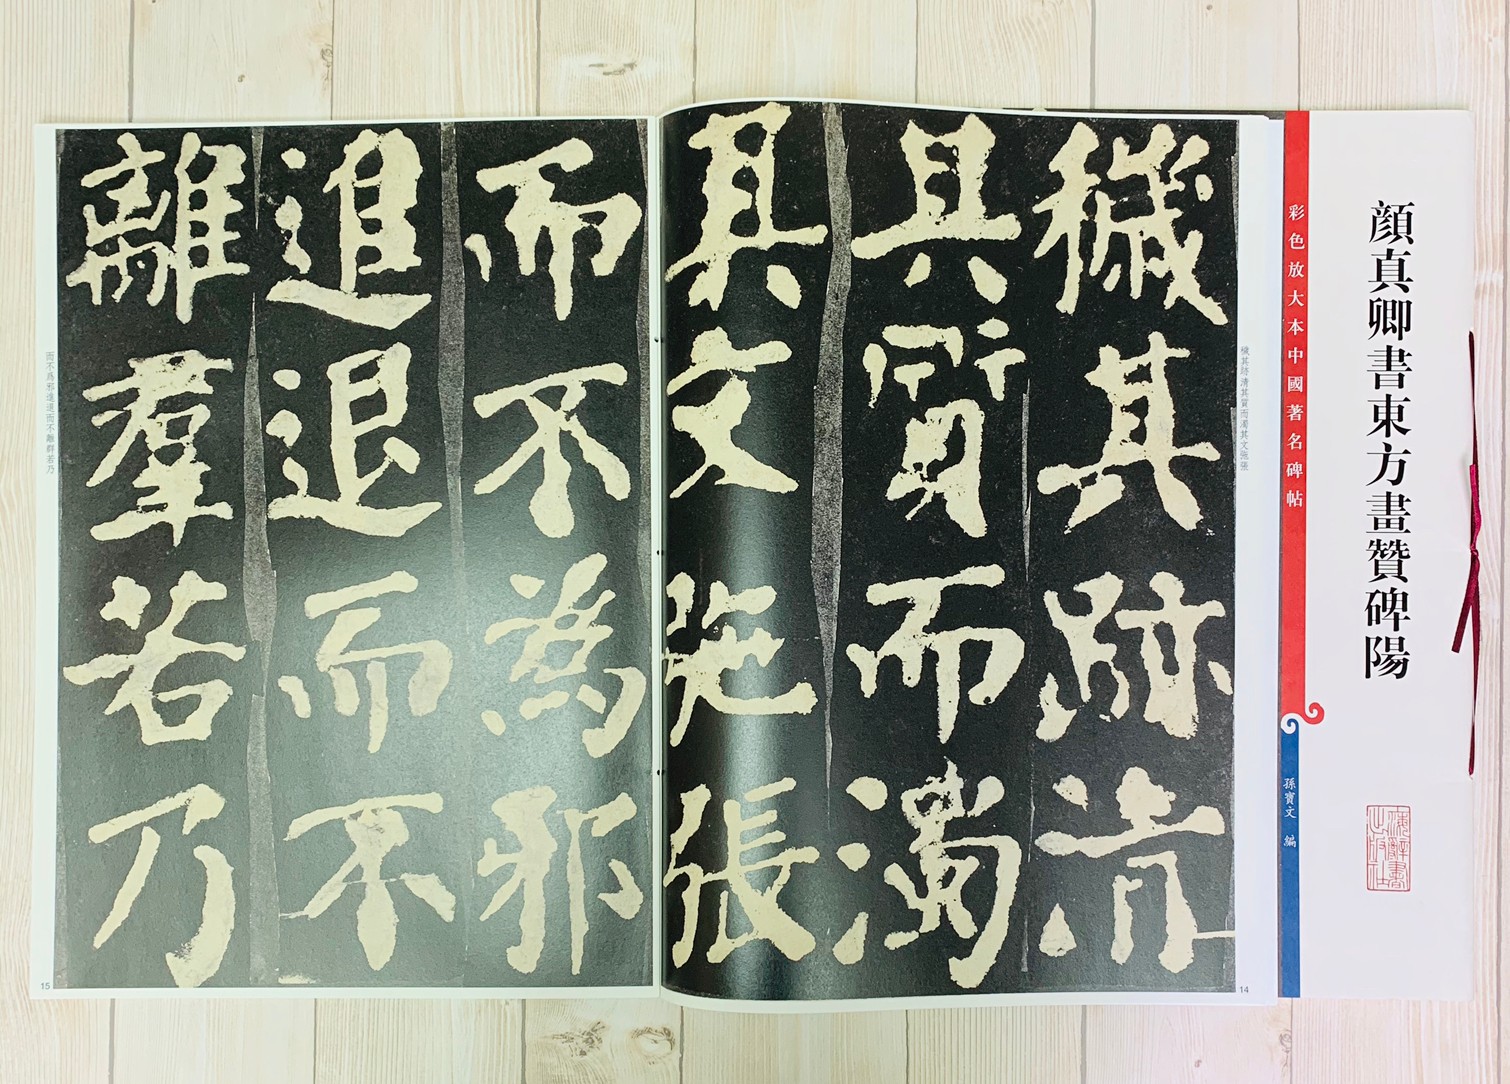 顔真卿書東方畫贊碑陽
彩色放大本中國著名碑帖
孫寶文 編
海辭書出版社
穢其跡清其質而濁其文㢮張
14
穢其跡清
其質而濁
其文㢮張
而不為邪
進退而不
離羣若乃
而不爲邪進退而不離群若乃
15